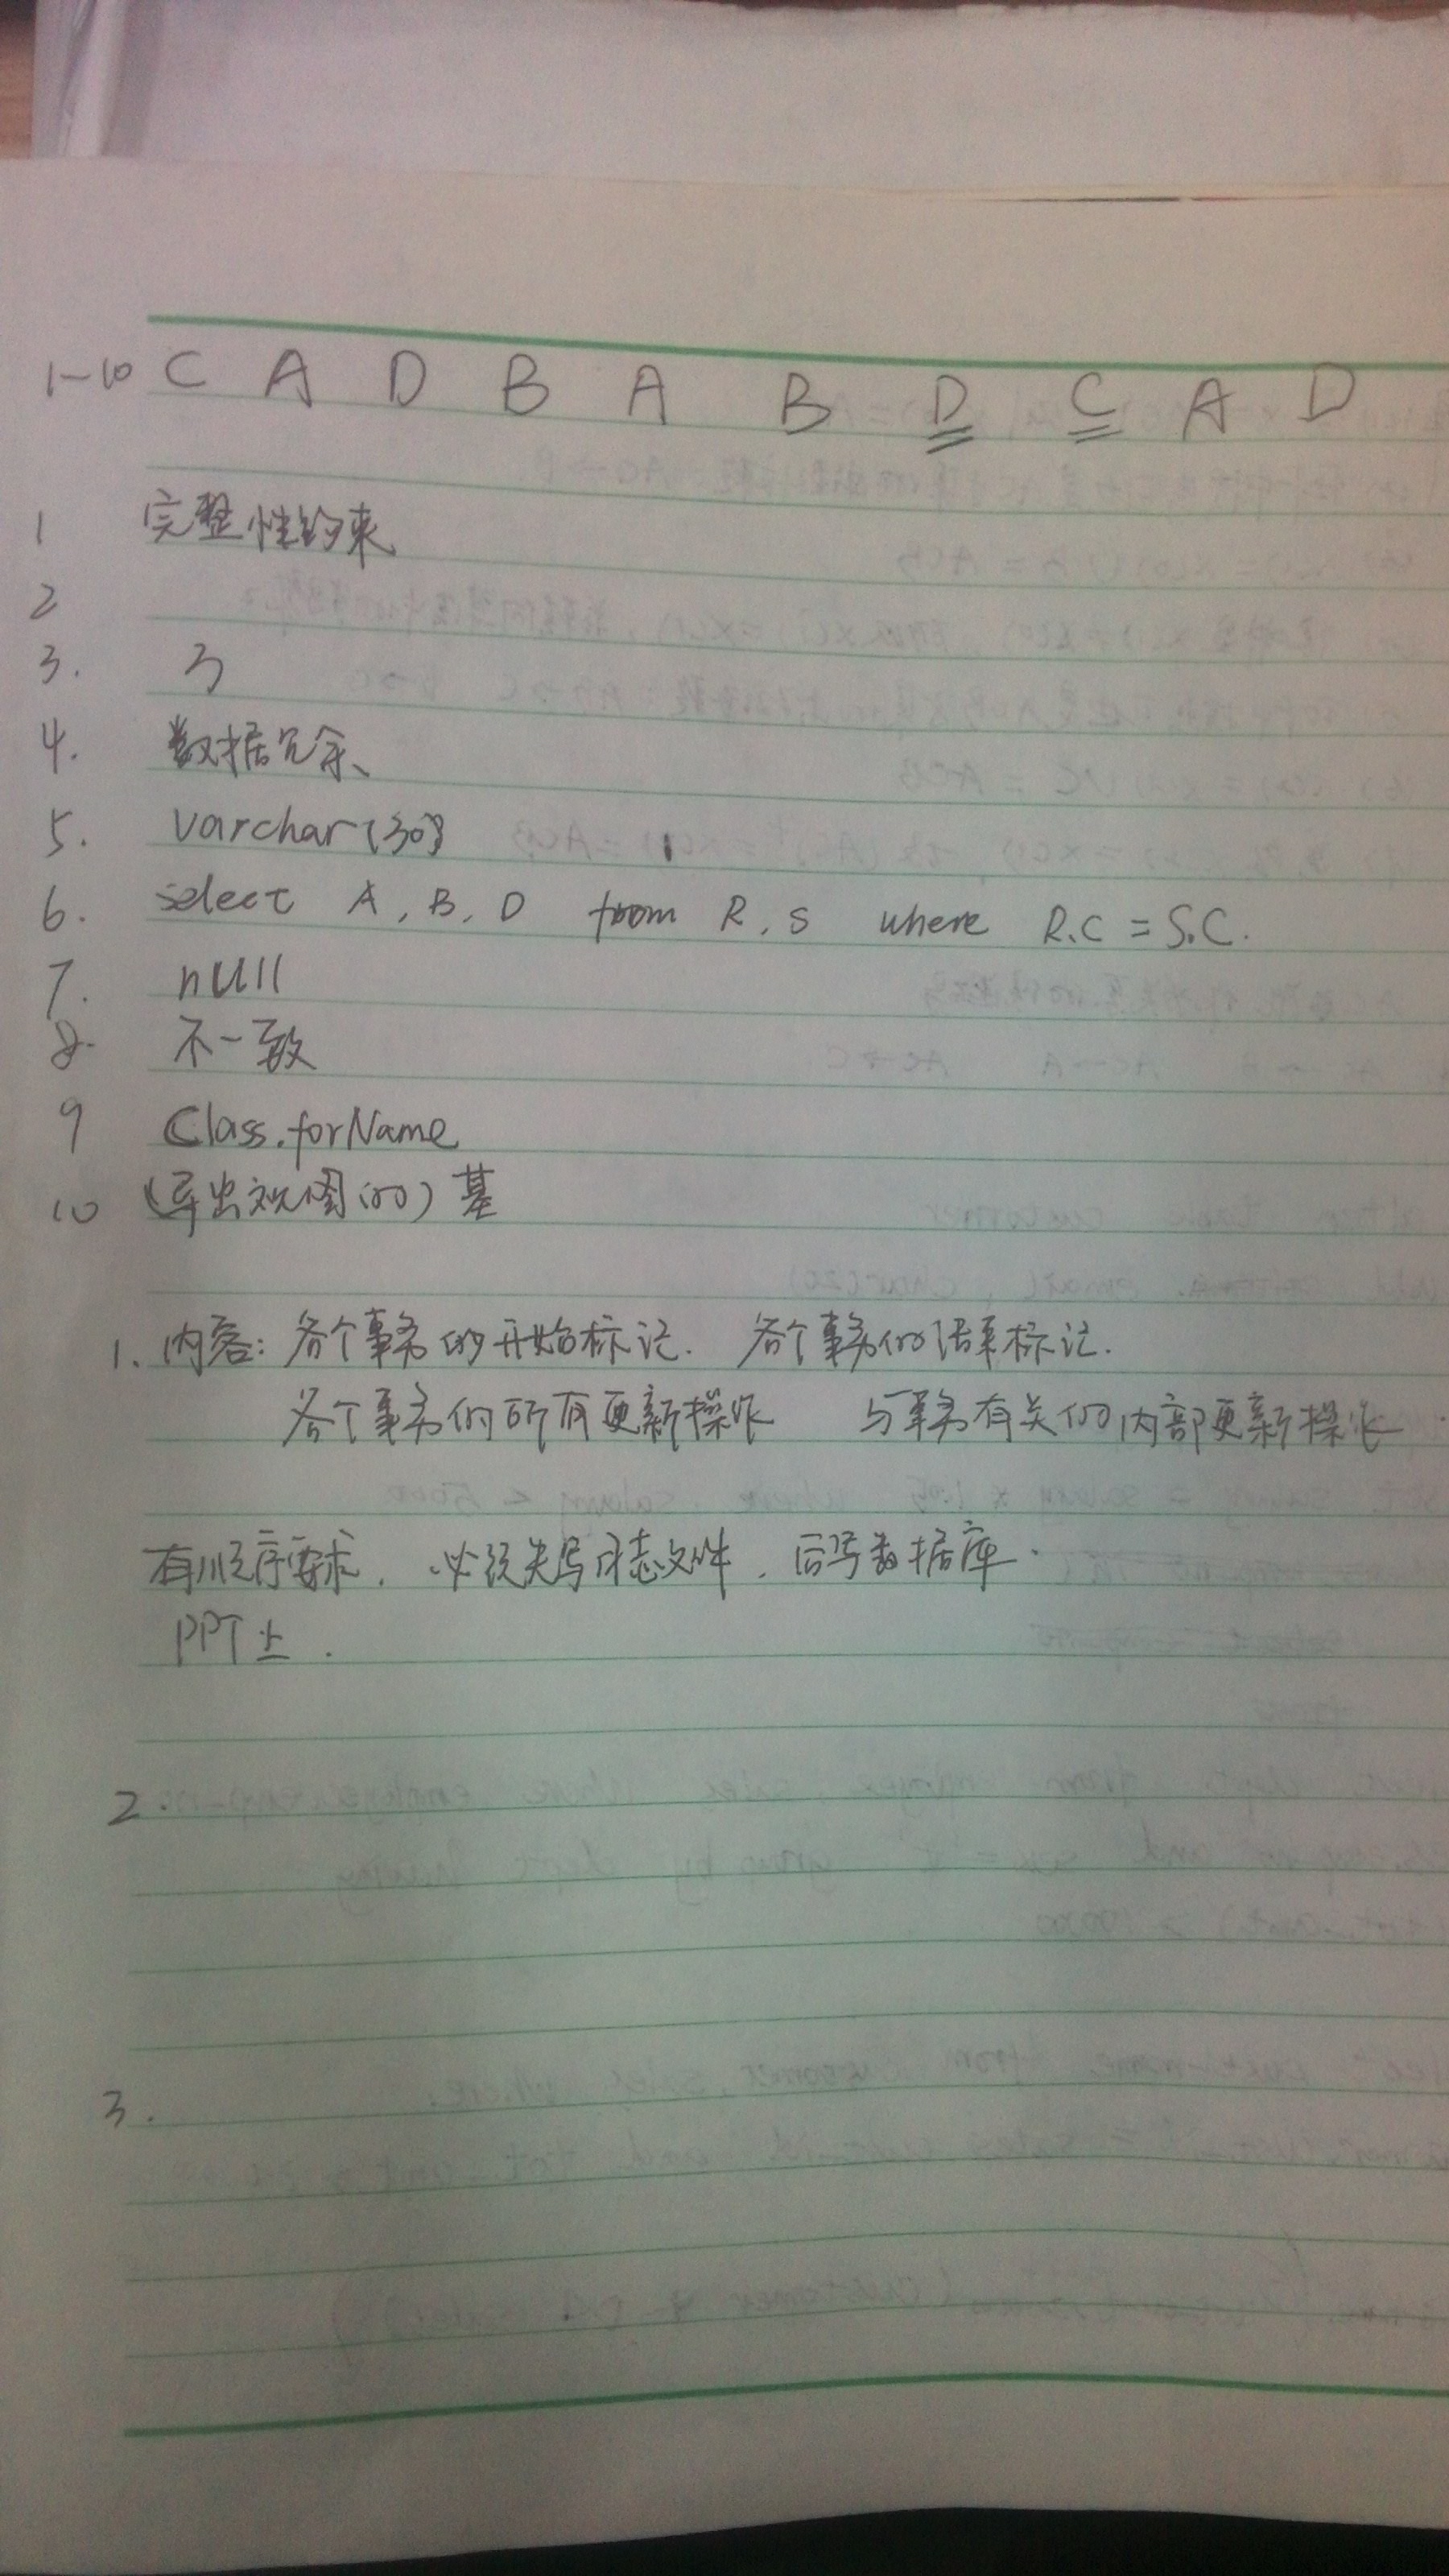 1-10 C A D B A B D C A D
1 完整性约束
2
3. 3
4. 数据冗余
5. varchar(30)
6. select A, B, D from R, S where R.C = S.C.
7. null
8. 不一致
9 Class.forName
10 (导出视图的) 基
1. 内容: 各个事务的开始标记. 各个事务的结束标记.
各个事务的所有更新操作 与事务有关的内部更新操作
有顺序要求. 必须先写日志文件. 后写数据库.
PPT上.
2.
3.